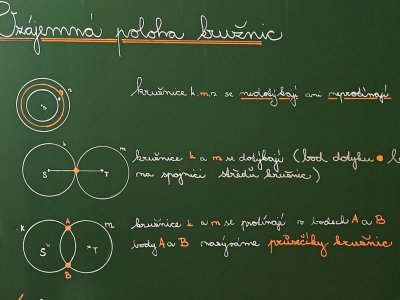 Vzájemná poloha kružnic
kružnice k, m, n se nedotýkají ani neprotínají
n
k
m
kružnice k a m se dotýkají (bod dotyku
S
T
na spojnici středů kružnic)
k
A
m
kružnice k a m se protínají v bodech A a B
S
T
body A a B nazýváme průsečíky kružnic
B